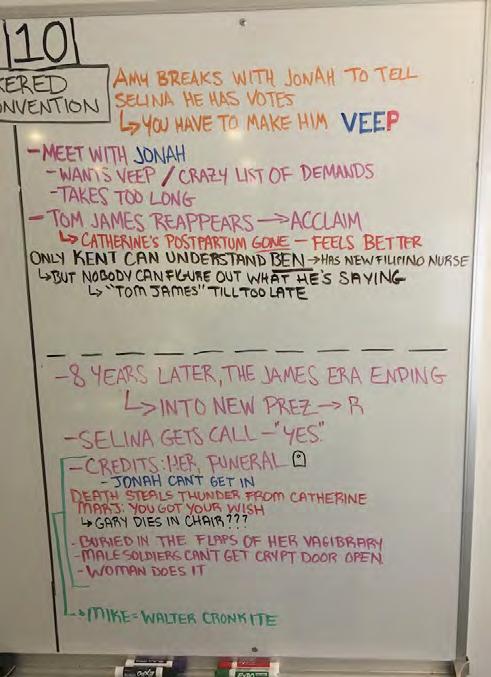 10
ERED
NVENTION
AMY BREAKS WITH JONAH TO TELL
SELINA HE HAS VOTES
↳ YOU HAVE TO MAKE HIM VEEP
- MEET WITH JONAH
- WANTS VEEP / CRAZY LIST OF DEMANDS
- TAKES TOO LONG
- TOM JAMES REAPPEARS → ACCLAIM
↳ CATHERINE'S POSTPARTUM GONE - FEELS BETTER
ONLY KENT CAN UNDERSTAND BEN → HAS NEW FILIPINO NURSE
↳ BUT NOBODY CAN FIGURE OUT WHAT HE'S SAYING
↳ "TOM JAMES" TILL TOO LATE
- 8 YEARS LATER, THE JAMES ERA ENDING
↳ INTO NEW PREZ → R
- SELINA GETS CALL - "YES."
- CREDITS: HER, FUNERAL
- JONAH CAN'T GET IN
DEATH STEALS THUNDER FROM CATHERINE
MARJ: YOU GOT YOUR WISH
↳ GARY DIES IN CHAIR???
- BURIED IN THE FLAPS OF HER VAGIBRARY
- MALE SOLDIERS CAN'T GET CRYPT DOOR OPEN
- WOMAN DOES IT
→ MIKE = WALTER CRONKITE
EXPO